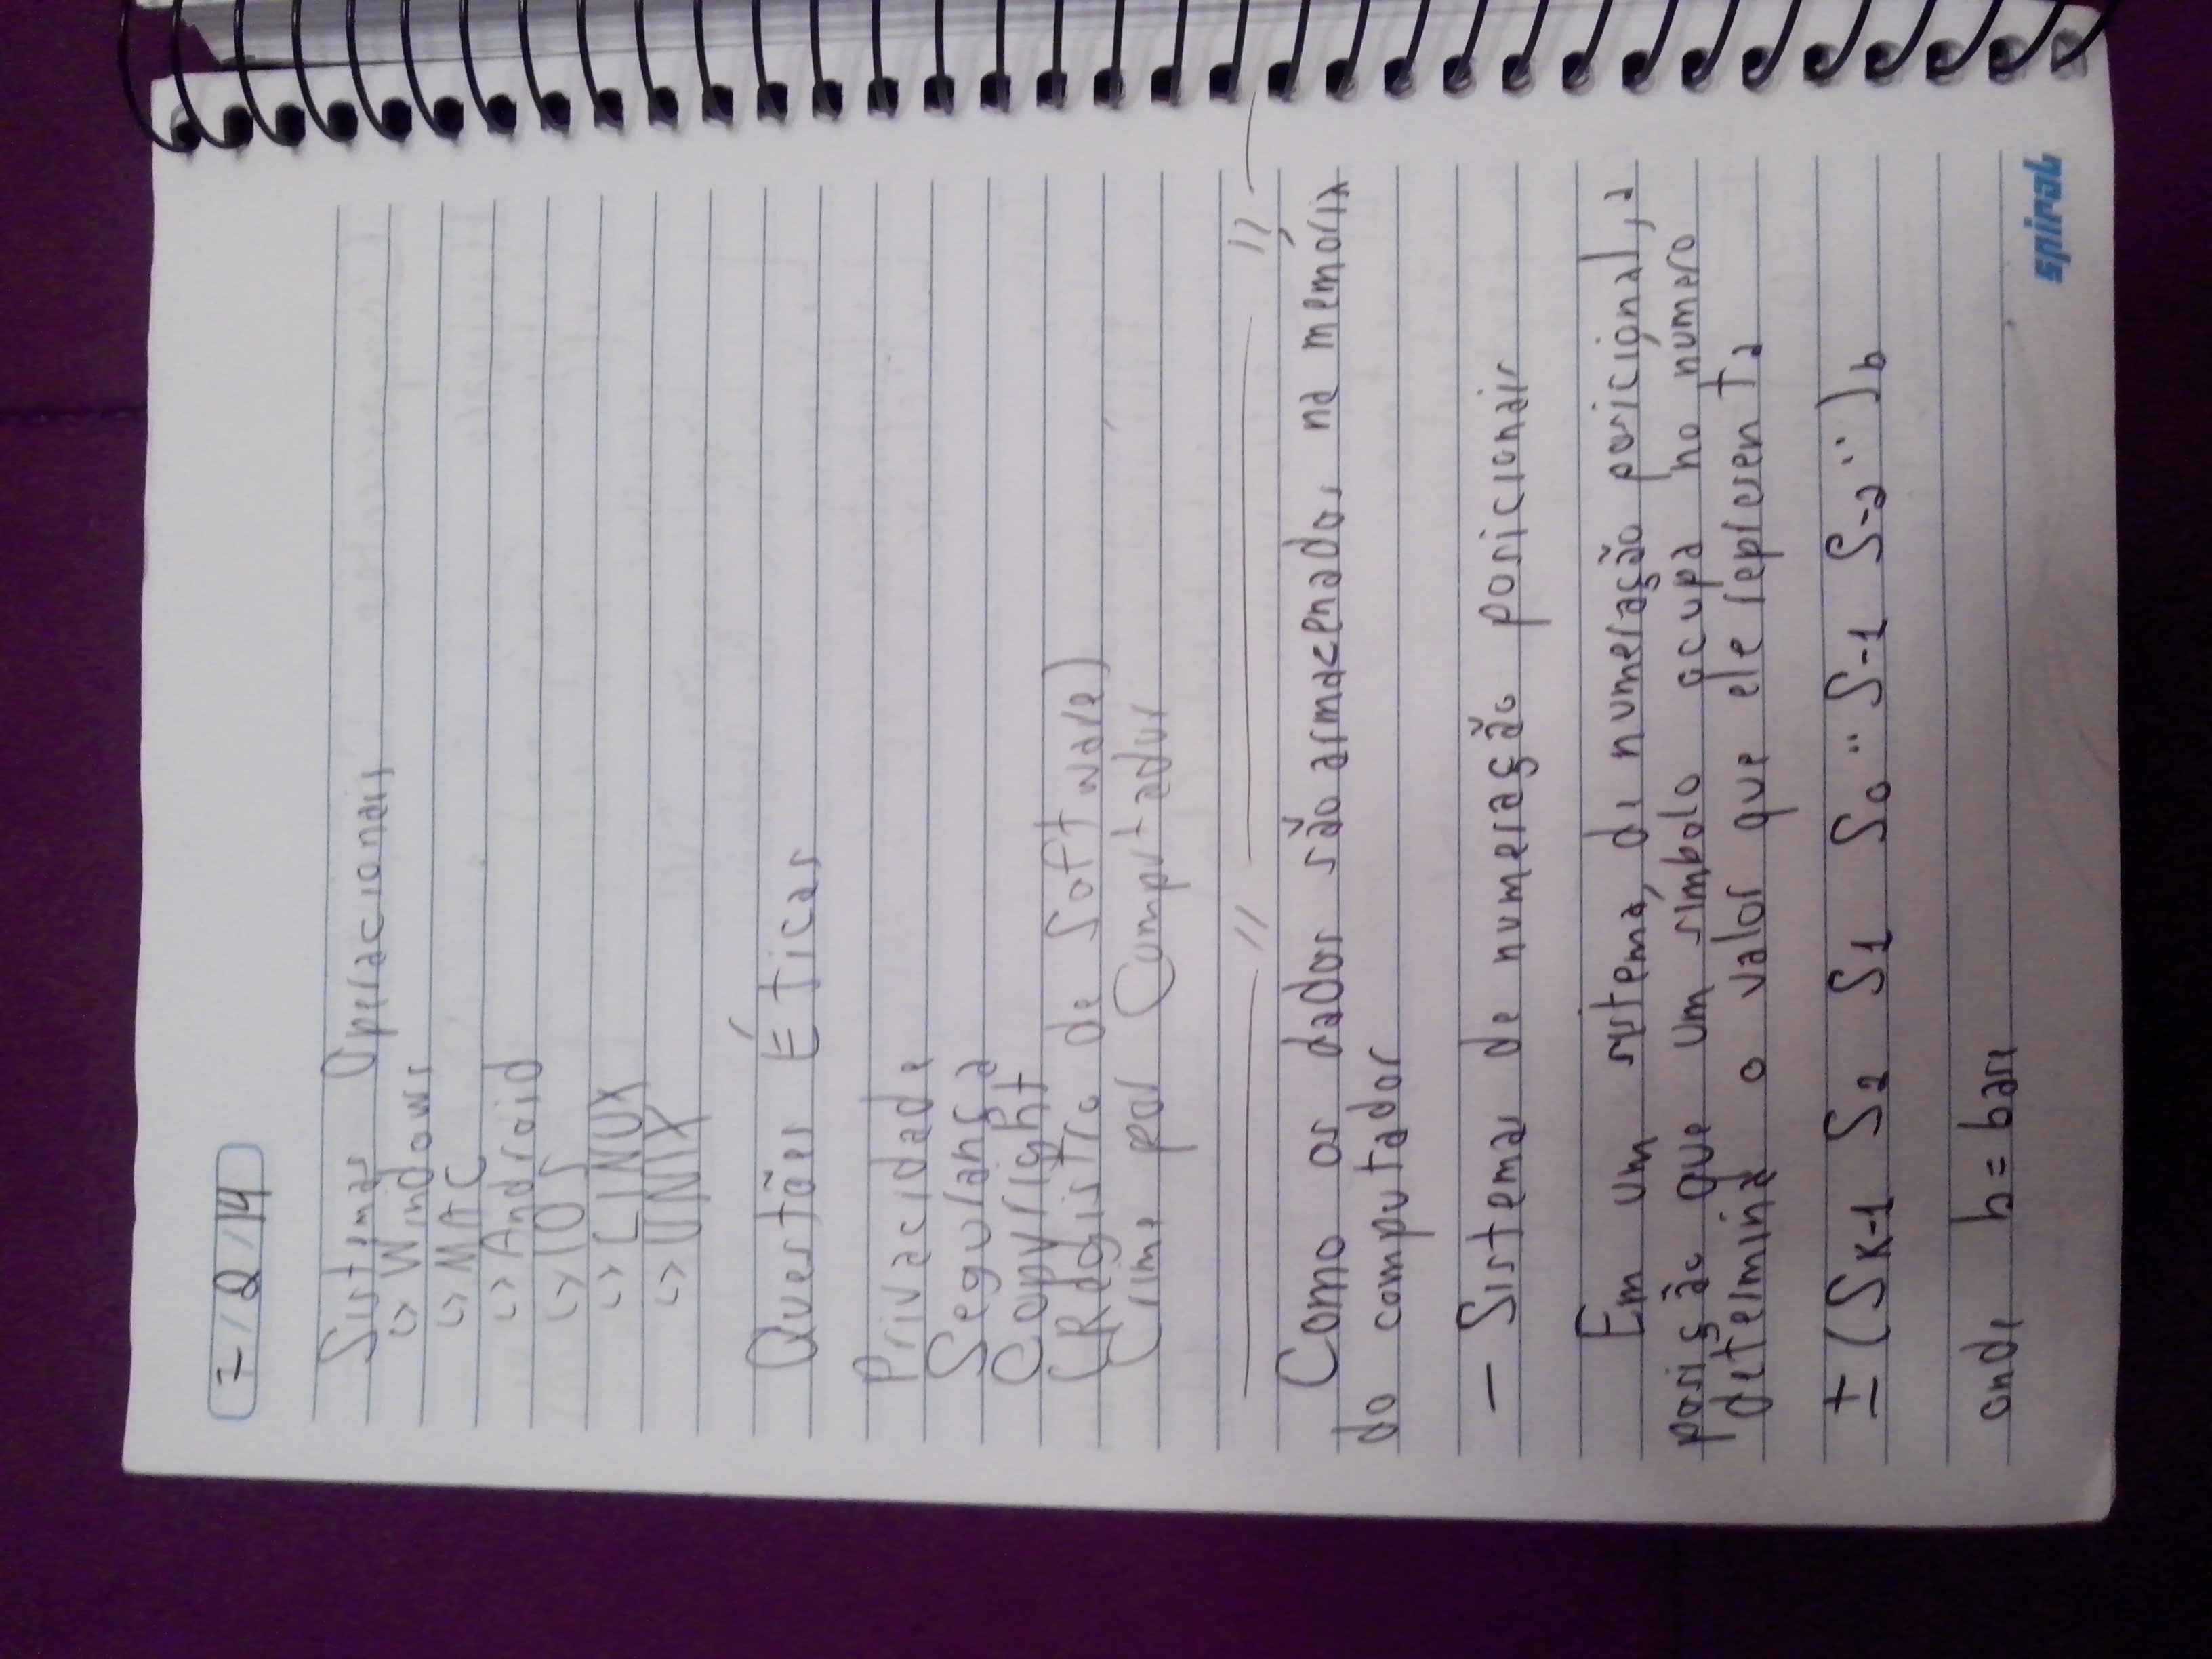 7/2/14
Sistemas Operacionais
↳ Windows
↳ MAC
↳ Android
↳ IOS
↳ LINUX
↳ UNIX
Questões Éticas
Privacidade
Segurança
Copyright
(Registro de Software)
Crime por Computador
Como os dados são armazenados na memória
do computador
- Sistemas de numeração posicionais
Em um sistema de numeração posicional, a
posição que um símbolo ocupa no número
determina o valor que ele representa
± (S_K-1 S_2 S_1 S_0 .. S_-1 S_-2 ..)_b
onde b = base
spiral